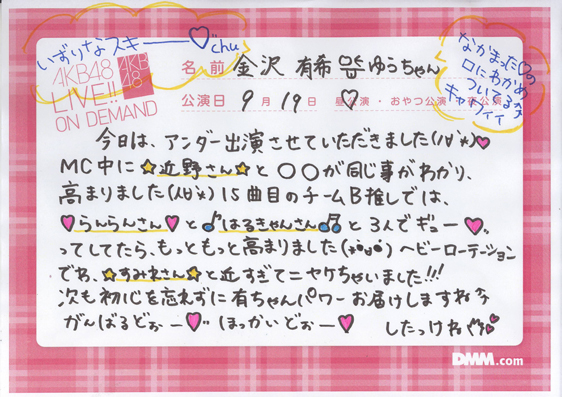 いずりなスキー♡chu
AKB48
LIVE!!
ON DEMAND
AKB
48
名前 金沢 有希 ゆうちゃん
公演日 9月19日 昼公演・おやつ公演・夜公演
なかまった♡の
口にわかめ
ついてる
キャフィィ
今日は、アンダー出演させていただきました(人∀`*)♥
MC中に★近野さん★と〇〇が同じ事がわかり、
高まりました(人∀`*)15曲目のチームB推しでは、
♥らんらんさん♥と♪はるきゃんさん♫と3人でギュー♥
ってしてたら、もっともっと高まりました(*•ω•*)ヘビーローテーション
でね、★すみれさん★と近すぎてニヤケちゃいました!!!
次も初心を忘れずに有ちゃんパワーお届けしますね
がんばるどぉー♥" ほっかいどぉー♥ したっけね
DMM.com